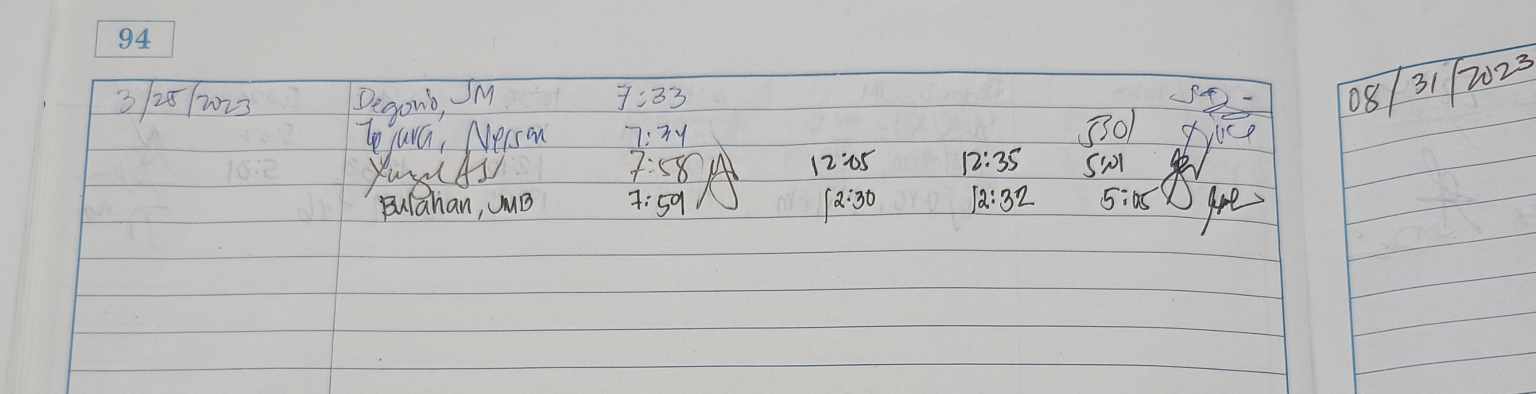 94
3/25/2023 Degorio, JM 7:33
Tejara, Nerson 7:34 5301
7:58 12:05 12:35 5:01
Bulahan, JMB 7:59 12:30 12:32 5:05
08/31/2023